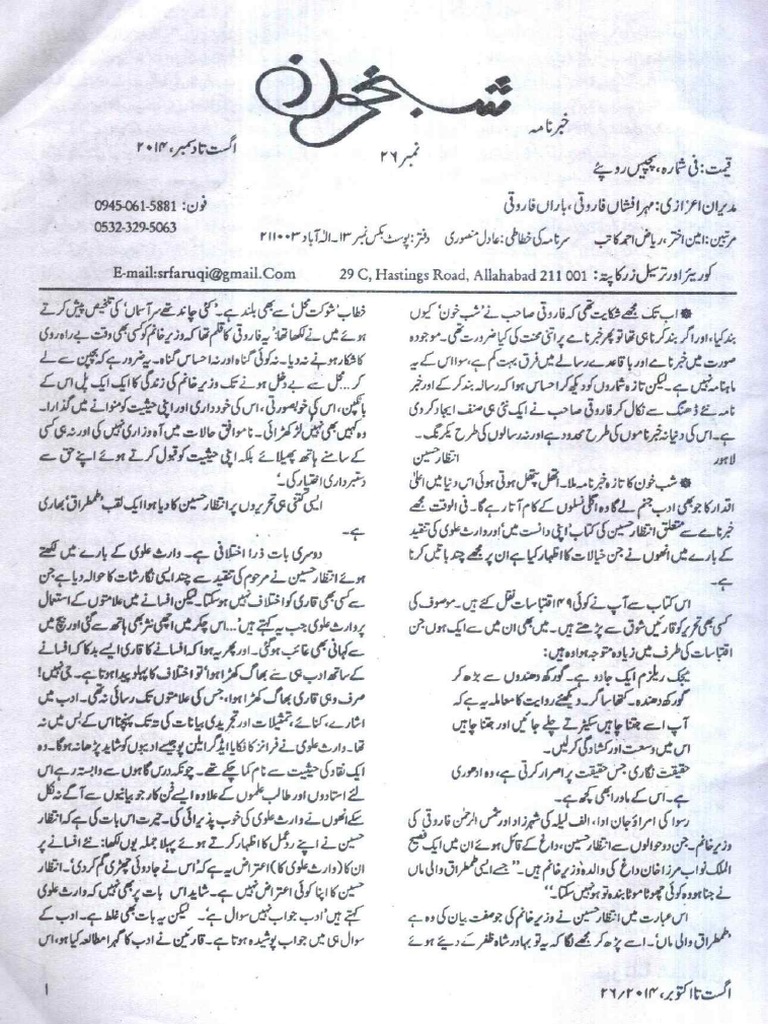 شب خون
خبرنامہ
نمبر ۲۶
اگست تا دسمبر، ۲۰۱۴
قیمت: فی شمارہ، پچیس روپئے
مدیران اعزازی: مہر افشاں فاروقی، باراں فاروقی
فون: 0945-061-5881
0532-329-5063
مرتبین: امین اختر، ریاض احمد کاتب سرنامہ کی خطاطی: عادل منصوری دفتر: پوسٹ بکس نمبر ۱۳۔ الہ آباد ۲۱۱۰۰۳
کوریئر اور ترسیل زر کا پتہ: 29 C, Hastings Road, Allahabad 211 001 E-mail:srfaruqi@gmail.Com
✽ اب تک مجھے شکایت تھی کہ فاروقی صاحب نے ’شب خون‘ کیوں
بند کیا، اور اگر بند کرنا ہی تھا تو پھر خبرنامے پر اتنی محنت کی کیا ضرورت تھی۔ موجودہ
صورت میں خبرنامے اور باقاعدے رسالے میں فرق بہت کم ہے، سوا اس کے یہ
ماہنامہ نہیں ہے۔ لیکن تازہ شماروں کو دیکھ کر احساس ہوا کہ رسالہ بند کر کے اور خبر
نامہ نئے ڈھنگ سے نکال کر فاروقی صاحب نے ایک نئی ہی صنف ایجاد کر دی
ہے۔ اس کی دنیا نہ خبرناموں کی طرح محدود ہے اور نہ رسالوں کی طرح یک رنگ۔
لاہور انتظار حسین
✽ شب خون کا تازہ خبرنامہ ملا۔ اتھل پتھل ہوتی ہوئی اس دنیا میں اعلیٰ
اقدار کا جو بھی ادب جنم لے گا وہ اگلی نسلوں کے کام آتا رہے گا۔ فی الوقت مجھے
خبرنامے سے متعلق انتظار حسین کی کتاب ’اپنی دانست میں‘ اور وارث علوی کی تنقید
کے بارے میں انھوں نے جن خیالات کا اظہار کیا ہے ان پر مجھے چند باتیں کرنا
ہے۔
اس کتاب سے آپ نے کوئی ۴۹ اقتباسات نقل کئے ہیں۔ موصوف کی
کسی بھی تحریر کو قارئین شوق سے پڑھتے ہیں۔ میں بھی ان میں سے ایک ہوں جن
اقتباسات کی طرف میں زیادہ متوجہ ہوا وہ ہیں:
میجک ریلزم ایک جادو ہے۔ گورکھ دھندوں سے بڑھ کر
گورکھ دھندہ۔ کتھا ساگر۔ دیکھئے روایت کا معاملہ یہ ہے کہ
آپ اسے جتنا چاہیں سکیڑتے چلے جائیں اور جتنا چاہیں
اس میں وسعت اور کشادگی کر لیں۔
حقیقت نگاری جس حقیقت پر اصرار کرتی ہے، وہ ادھوری
ہے۔ اس کے ماورا بھی کچھ ہے۔
رسوا کی امراؤ جان ادا، الف لیلہ کی شہرزاد اور شمس الرحمٰن فاروقی کی
وزیر خانم۔ جن دو حوالوں سے انتظار حسین، داغ کے قائل ہوئے ان میں ایک فصیح
الملک نواب مرزا خان داغ کی والدہ وزیر خانم ہیں۔ ”جسے ایسی طمطراق والی ماں
نے جنا ہو وہ کوئی چھوٹا موٹا بندہ تو ہو نہیں سکتا۔“
اس عبارت میں انتظار حسین نے وزیر خانم کی جو صفت بیان کی وہ ہے
’طمطراق والی ماں‘۔ اسے پڑھ کر مجھے لگا کہ یہ تو بہادر شاہ ظفر کے دیئے ہوئے
خطاب ’شوکت محل‘ سے بھی بلند ہے۔ ’کئی چاند تھے سر آسماں‘ کی تلخیص پیش کرتے
ہوئے میں نے لکھا تھا: ’یہ فاروقی کا قلم تھا کہ وزیر خانم کو کسی بھی وقت بے راہ روی
کا شکار ہونے نہ دیا۔ نہ کوئی گناہ اور نہ احساس گناہ۔ یہ ضرور ہے کہ بچپن سے لے
کر... محل سے بے دخل ہونے تک وزیر خانم کی زندگی کا ایک ایک پل اس کے
بانکپن، اس کی خوبصورتی، اس کی خودداری اور اپنی حیثیت کو منوانے میں گذارا۔
وہ کہیں بھی نہیں لڑکھڑائی۔ ناموافق حالات میں آہ وزاری نہیں کی اور نہ ہی کسی
کے سامنے ہاتھ پھیلائے بلکہ اپنی حیثیت کو قبول کرتے ہوئے اپنے حق سے
دستبرداری اختیار کی۔‘
ایسی کتنی ہی تحریروں پر انتظار حسین کا دیا ہوا ایک لقب ’طمطراق‘ بھاری
ہے۔
دوسری بات ذرا اختلافی ہے۔ وارث علوی کے بارے میں لکھتے
ہوئے انتظار حسین نے مرحوم کی تنقید سے چند ایسی نگارشات کا حوالہ دیا ہے جن
سے کسی بھی قاری کو اختلاف نہیں ہو سکتا۔ لیکن افسانے میں علامتوں کے استعمال
پر وارث علوی جب یہ کہتے ہیں: ’...اس چکر میں اچھی نثر بھی ہاتھ سے گئی اور بیچ میں
سے کہانی بھی غائب ہو گئی۔ اور پھر یہ ہوا کہ افسانے کا قاری ایسے بدکا کہ افسانے
کے ساتھ ادب ہی سے بھاگ کھڑا ہوا‘ تو اختلاف کا پہلو پیدا ہوتا ہے۔ جی نہیں!
صرف وہی قاری بھاگ کھڑا ہوا، جس کی علامتوں تک رسائی نہ تھی۔ ادب میں
اشارے، کنائے، تمثیلات اور تجریدی بیانات کی تہہ تک پہنچنا اس کے بس میں نہ
تھا۔ وارث علوی نے فرانز کافکا یا ایڈگر ایلن پو جیسے ادیبوں کو شاید پڑھا نہ ہوگا۔ وہ
ایک نقاد کی حیثیت سے نام کما چکے تھے۔ چونکہ درس گاہوں سے وابستہ رہے اس
لئے استادوں اور طالب علموں کے علاوہ ایسے فن کار جو بیانیوں سے آگے نہ نکل
سکے انھوں نے وارث علوی کی خوب پذیرائی کی۔ حیرت اس بات کی ہے کہ انتظار
حسین نے اپنے رد عمل کا اظہار کرتے ہوئے پہلا جملہ یوں لکھا: ’نئے افسانے پر
ان کا (وارث علوی کا) اعتراض یہ ہے کہ ’اس نے جادوئی چھڑی گم کر دی‘۔ انتظار
حسین کا اپنا کوئی اعتراض نہیں ہے۔ شاید اس بات پر بھی نہیں کہ وارث علوی
کہتے ہیں ’ادب جواب نہیں سوال ہے‘۔ لیکن یہ بات بھی غلط ہے۔ ادب کے
سوال ہی میں جواب پوشیدہ ہوتا ہے۔ قارئین نے ادب کا گہرا مطالعہ کیا ہو، اس
اگست تا اکتوبر، ۲۶/۲۰۱۴
۱